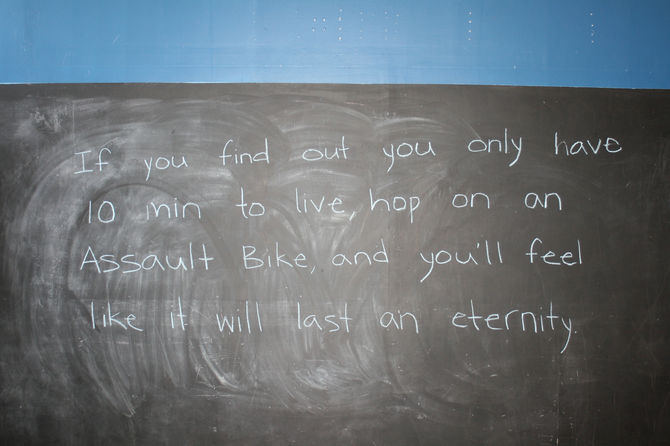 If you find out you only have
10 min to live, hop on an
Assault Bike, and you'll feel
like it will last an eternity.